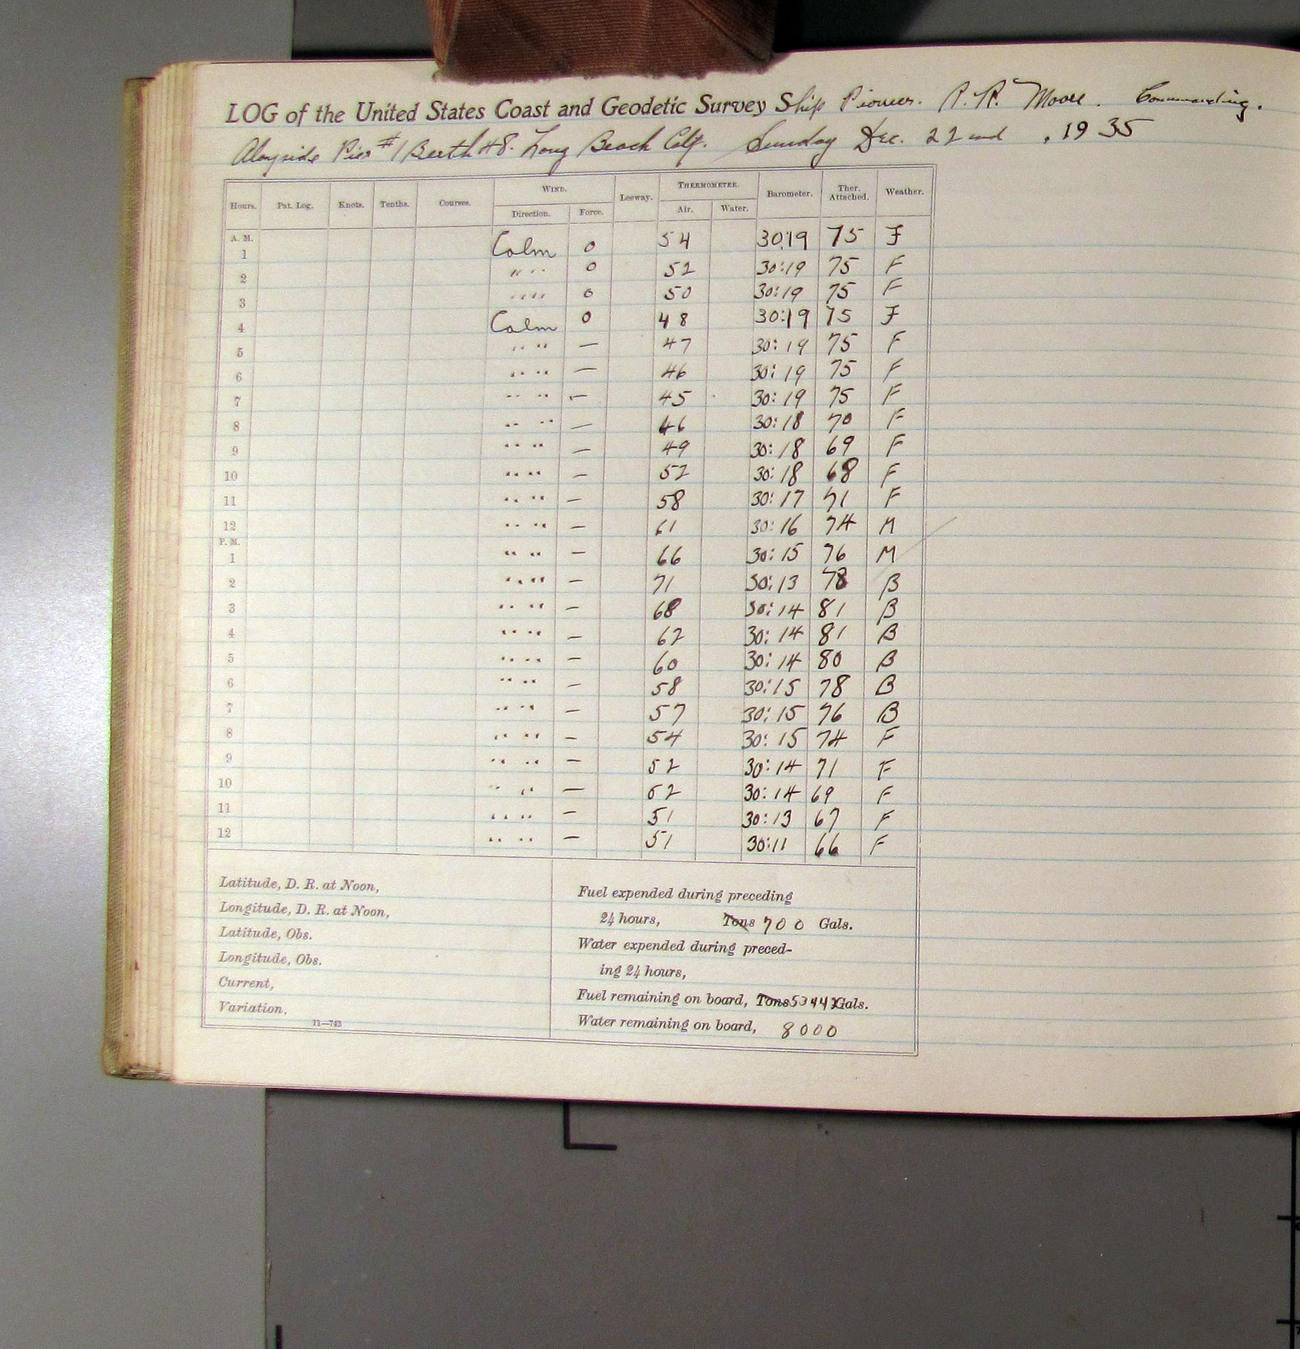 LOG of the United States Coast and Geodetic Survey Ship Pioneer. R. R. Moore. Commanding.
Alongside Pier #1 Berth 48. Long Beach Calif. Sunday Dec. 22nd, 1935
Hours. Pat. Log. Knots. Tenths. Courses. WIND. Direction. Force. Leeway. THERMOMETER. Air. Water. Barometer. Ther. Attached. Weather.
A. M.
1 Calm 0 54 30:19 75 F
2 " " 0 52 30:19 75 F
3 " " 0 50 30:19 75 F
4 Calm 0 48 30:19 75 F
5 " " — 47 30:19 75 F
6 " " — 46 30:19 75 F
7 " " — 45 30:19 75 F
8 " " — 46 30:18 70 F
9 " " — 49 30:18 69 F
10 " " — 52 30:18 68 F
11 " " — 58 30:17 71 F
12 " " — 61 30:16 74 M
P. M.
1 " " — 66 30:15 76 M
2 " " — 71 30:13 78 B
3 " " — 68 30:14 81 B
4 " " — 62 30:14 81 B
5 " " — 60 30:14 80 B
6 " " — 58 30:15 78 B
7 " " — 57 30:15 76 B
8 " " — 54 30:15 74 F
9 " " — 52 30:14 71 F
10 " " — 52 30:14 69 F
11 " " — 51 30:13 67 F
12 " " — 51 30:11 66 F
Latitude, D. R. at Noon,
Longitude, D. R. at Noon,
Latitude, Obs.
Longitude, Obs.
Current,
Variation,
11—743
Fuel expended during preceding
24 hours, Tons 700 Gals.
Water expended during preced-
ing 24 hours,
Fuel remaining on board, Tons Gals.
Water remaining on board, 8000